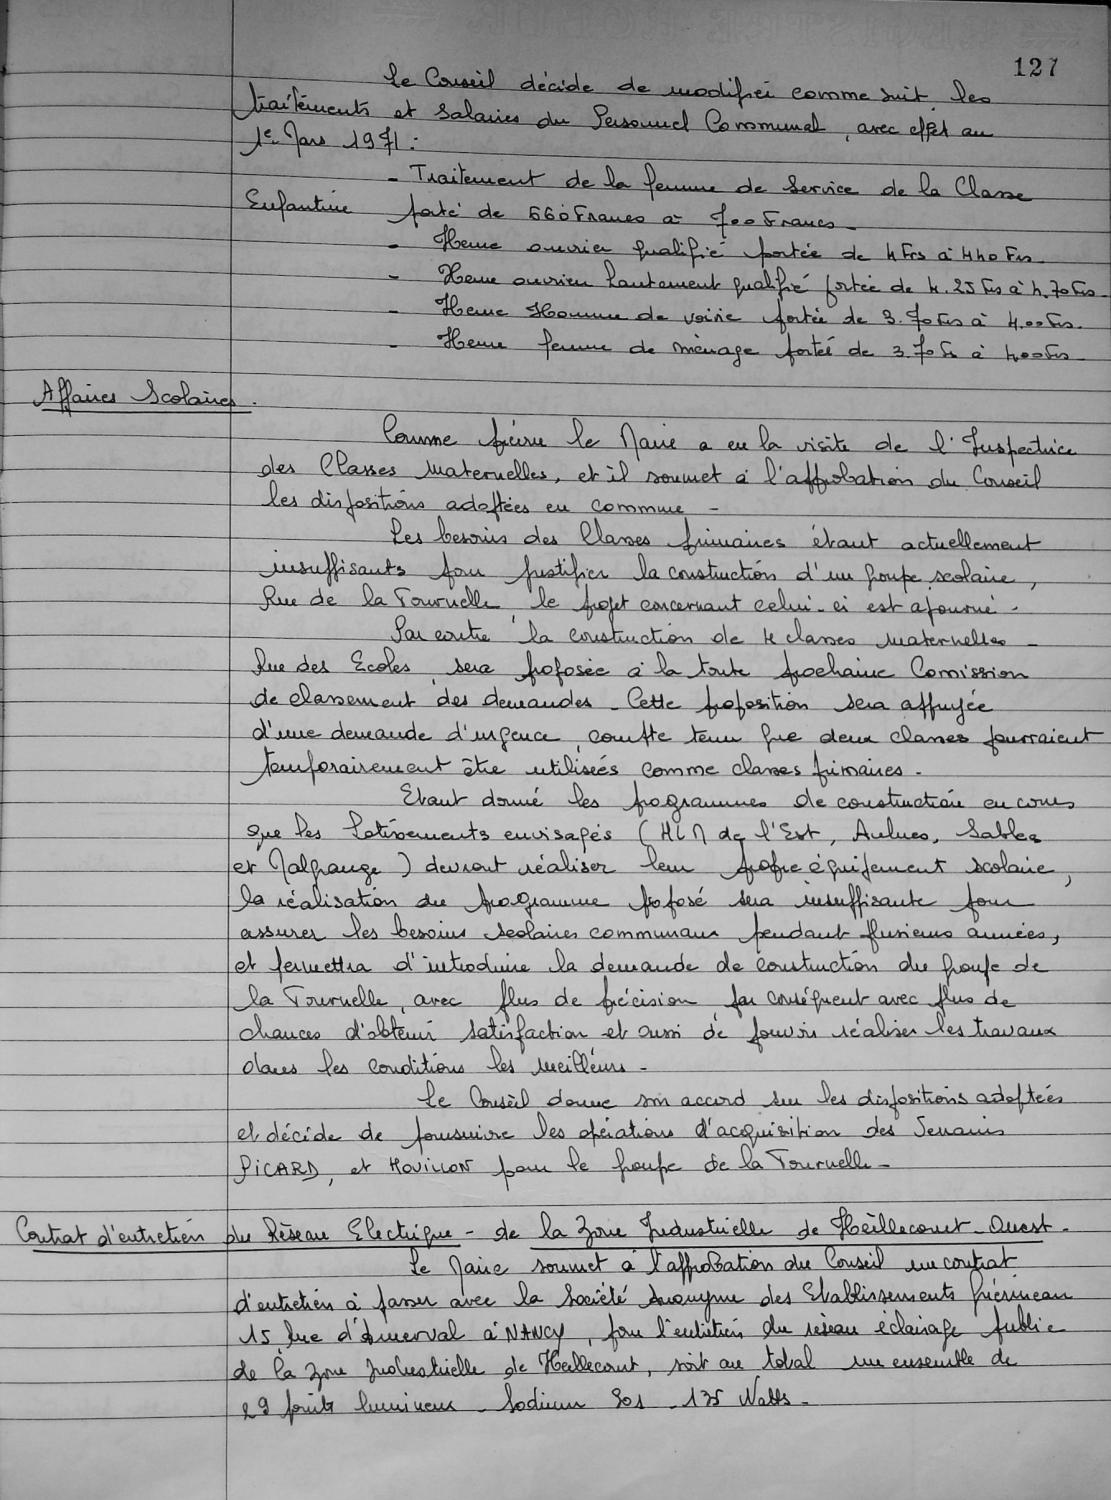 127
Le Conseil décide de modifier comme suit les
traitements et salaires du Personnel Communal, avec effet au
1er Mars 1971 :
- Traitement de la femme de Service de la Classe
Enfantine porté de 660 Francs à 700 Francs -
- Heure ouvrier qualifié portée de 4 Frs à 440 Frs -
- Heure ouvrier hautement qualifié portée de 4.25 Frs à 4.70 Frs -
- Heure Homme de voirie portée de 3.70 Frs à 4.00 Frs.
- Heure femme de ménage portée de 3.70 Fs à 4.00 Frs -
Affaires Scolaires.
Comme prévu le Maire a eu la visite de l'Inspectrice
des Classes Maternelles, et il soumet à l'approbation du Conseil
les dispositions adoptées en commune -
Les besoins des Classes primaires étant actuellement
insuffisants pour justifier la construction d'un groupe scolaire,
Rue de la Tournelle, le projet concernant celui-ci est ajourné -
Par contre la construction de 4 classes maternelles -
Rue des Ecoles, sera proposée à la toute prochaine Comission
de classement des demandes - Cette proposition sera appuyée
d'une demande d'urgence, compte tenu que deux classes pourraient
temporairement être utilisées comme classes primaires.
Etant donné les programmes de construction en cours
que les lotissements envisagés (HLM de l'Est, Aulnes, Sables
et Malgrange) devront réaliser leur propre équipement scolaire,
la réalisation du programme proposé sera insuffisante pour
assurer les besoins scolaires communaux pendant plusieurs années,
et permettra d'introduire la demande de construction du groupe de
la Tournelle, avec plus de précision par conséquent avec plus de
chances d'obtenir satisfaction et aussi de pouvoir réaliser les travaux
dans les conditions les meilleurs -
Le Conseil donne son accord sur les dispositions adoptées
et décide de poursuivre les opérations d'acquisition des Terrains
PICARD, et HOUILLON pour le groupe de la Tournelle -
Contrat d'entretien du Réseau Electrique - de la Zone Industrielle de Heillecourt-Ouest -
Le Maire soumet à l'approbation du Conseil un contrat
d'entretien à passer avec la Société Anonyme des Etablissements
15 Rue d' à NANCY, pour l'entretien du réseau éclairage public
de la Zone Industrielle de Heillecourt, soit au total un ensemble de
29 points lumineux - Sodium - 135 Watts -